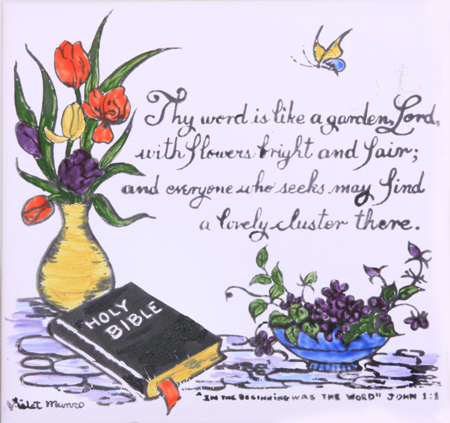 Thy word is like a garden, Lord,
with flowers bright and fair;
and everyone who seeks may find
a lovely cluster there.
HOLY
BIBLE
Violet Munro
"IN THE BEGINNING WAS THE WORD" JOHN 1:1